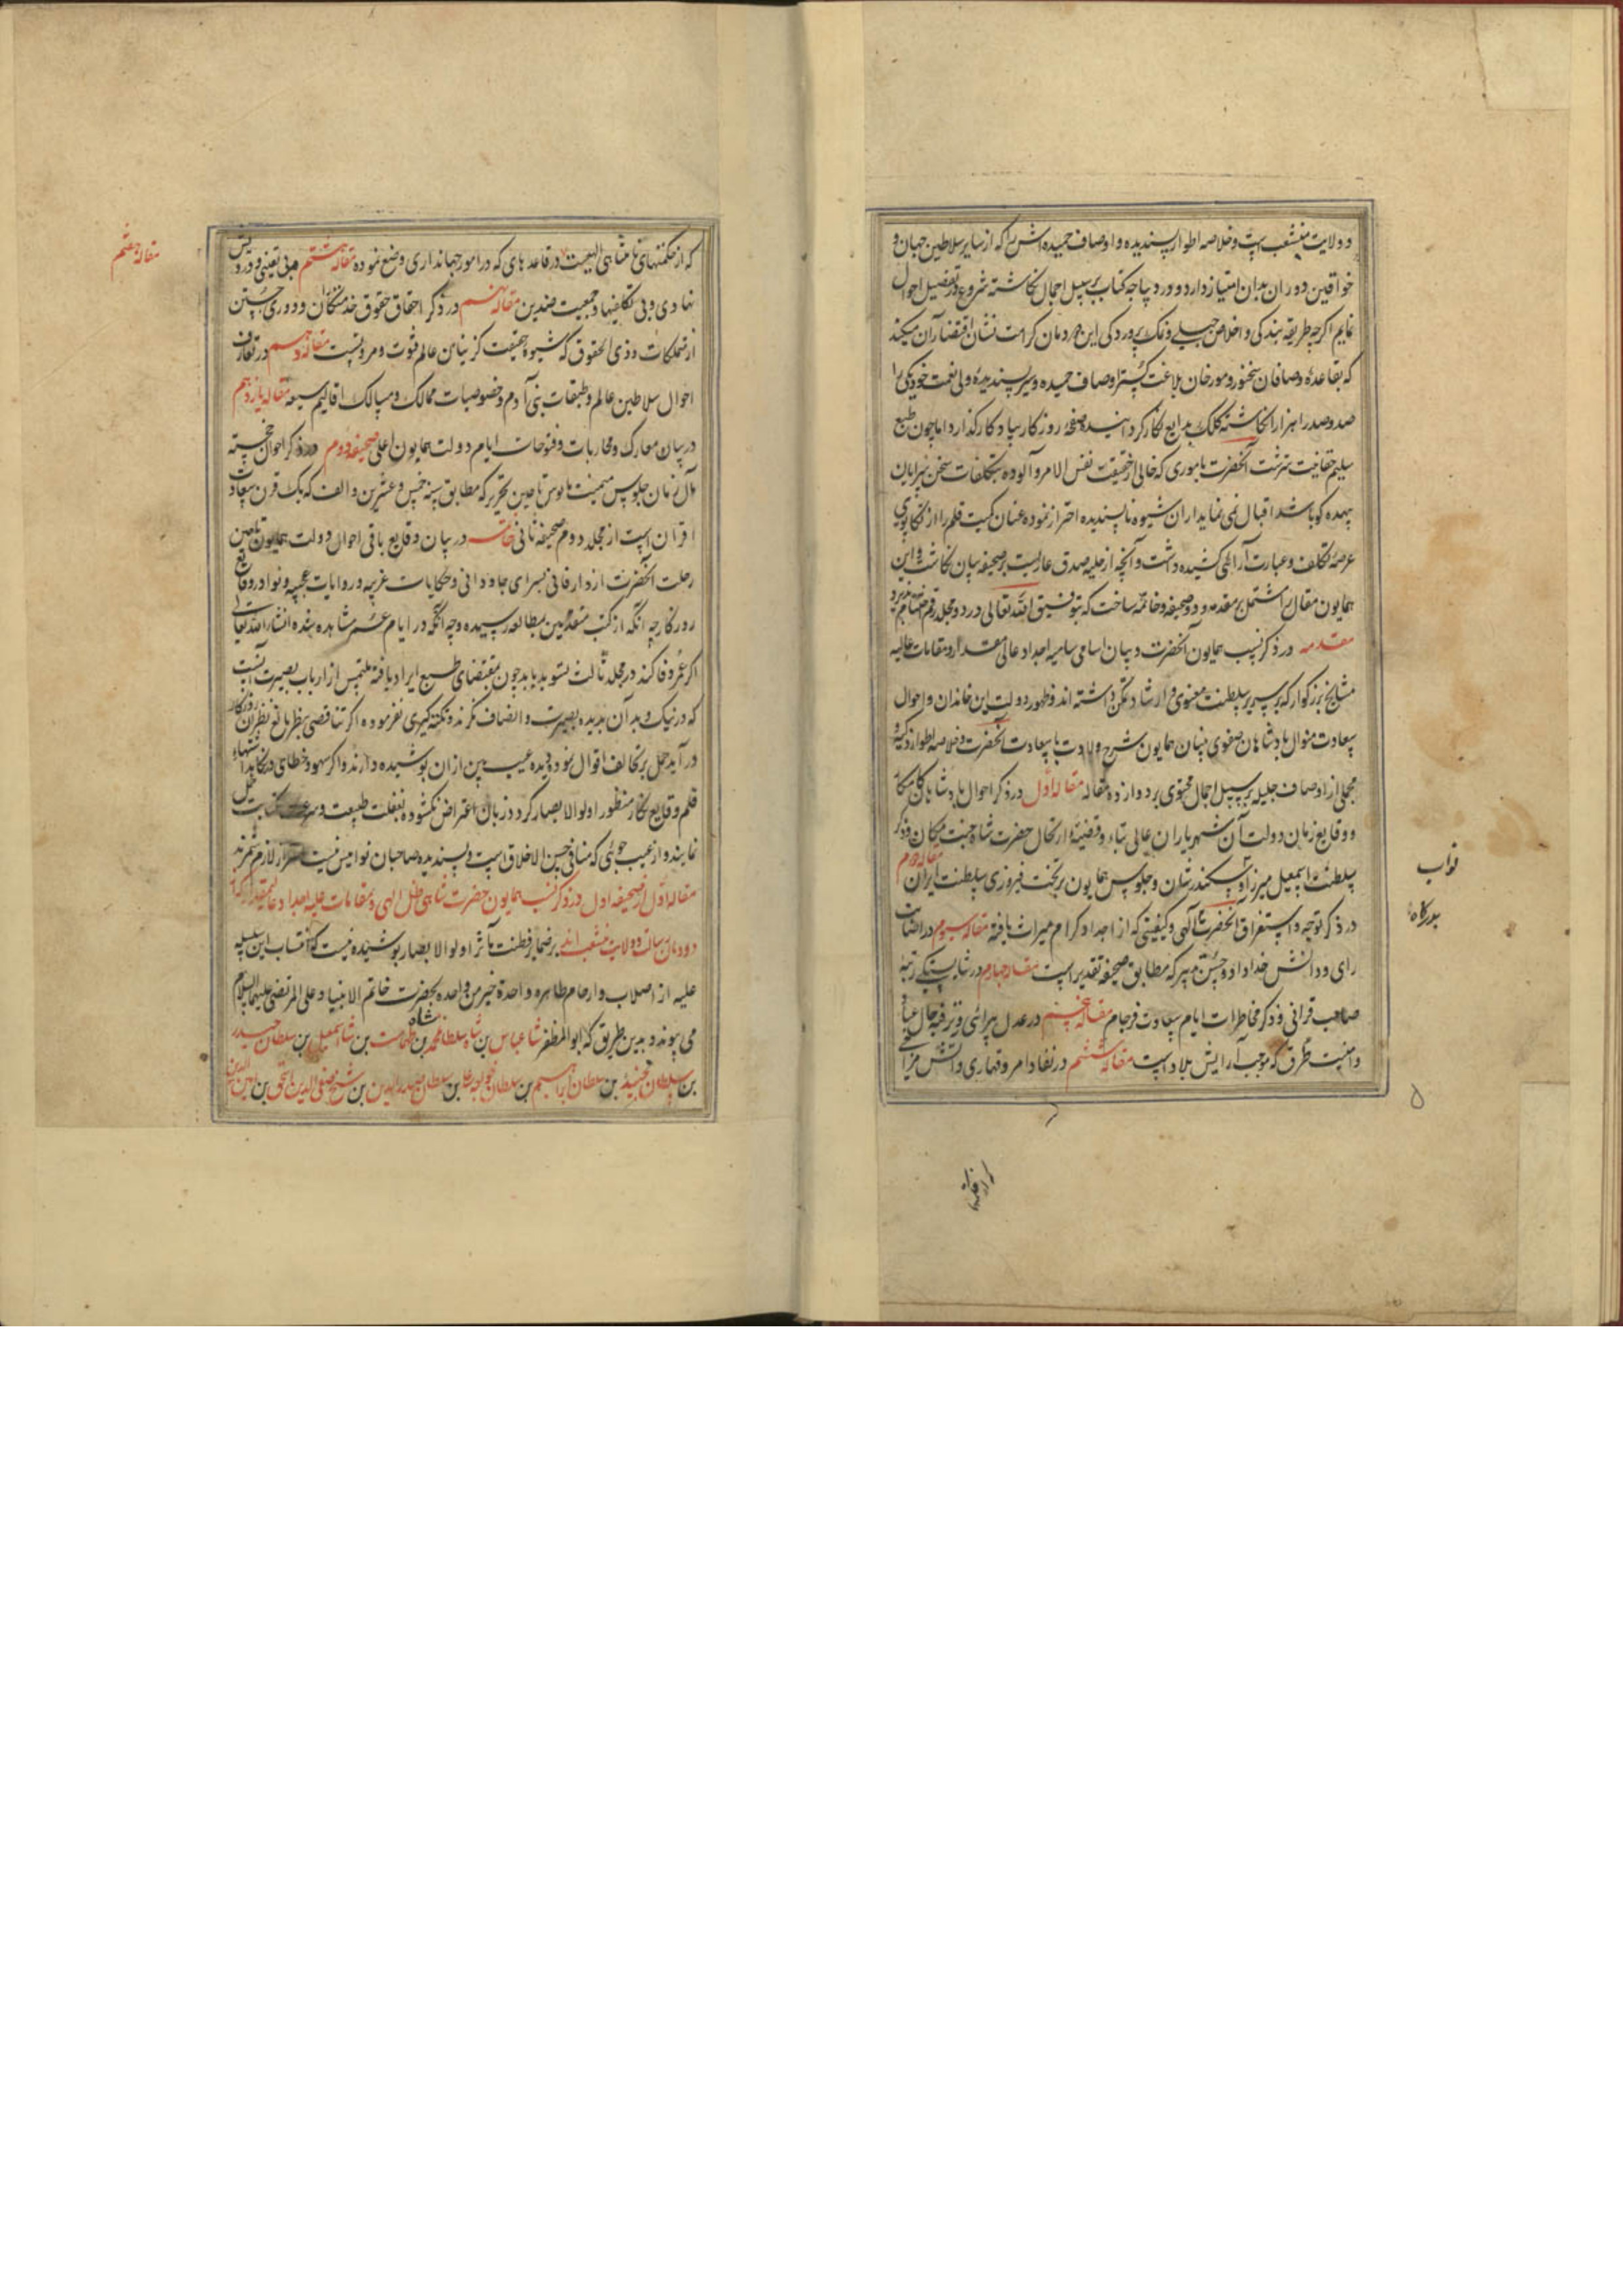 و ولایت منشعب است و خلاصه اطوار پسندیده و اوصاف حمیده اش را که از سایر سلاطین جهان و
خواقین دوران بدان امتیاز دارد و در دیباجه کتاب بر سبیل اجمال نگاشته شروع در تفصیل احوال
نمایم اگرچه طریقه بندگی و اخلاص جبلی و نمک پروردگی این دودمان کرامت نشان اقتضا آن میکند
که بقاعده وصافان سخنور و مورخان بلاغت گستر اوصاف حمیده و سیر پسندیده ولی نعمت خود یکی را
صد و صد را هزار انگاشته کلک بدایع نگار گرداننیده صفحه روزگار بیادگار گذارد اما چون طبع
سلیم حقانیت سرشت آنحضرت بامری که خالی از حقیقت نفس الامر و آلوده بتکلفات سخن سرایان
بیهده گو باشد اقبال نمی نماید از ان شیوه ناپسندیده احتراز نموده عنان کمیت قلم را از تکاپوی
عرصه تکلف و عبارت آرائی کشیده داشت و آنچه از حلیه صدق عاریست بر صحیفه بیان نگاشت و این
همایون مقال را مشتمل بر مقدمه و دو صحیفه و خاتمه ساخت که بتوفیق الله تعالی در دو مجلد رقم
مقدمه در ذکر نسب همایون آنحضرت و بیان اسامی سامیه اجداد عالی مقدار و مقامات عالیه
مشایخ بزرگوار که بر سریر سلطنت معنوی و ارشاد تمکن داشته اند و ظهور دولت این خاندان و احوال
سعادت منوال پادشاهان صفوی بنیان همایون شرح ولادت با سعادت آنحضرت و خلاصه اطوار زکیه و
مجملی از اوصاف جلیله بر سبیل اجمال محتوی بر دوازده مقاله مقاله اول در ذکر احوال پادشاهان
و وقایع زمان دولت آن شهریاران عالی تبار و قضیه ارتحال حضرت شاه جنت مکان و ذکر
سلطنت اسمعیل میرزا و سکندر شان و جلوس همایون بر تخت فیروزی سلطنت ایران مقاله دوم
در ذکر توجه و استغراق آنحضرت الهی و کیفیتی که از اجداد کرام میراث یافته مقاله سیوم در اصابت
رای و دانش خداداد و حسن تدبیر که مطابق صحیفه تقدیر است مقاله چهارم در شایستگی رتبه
صاحب قرانی و ذکر مخاطرات ایام سعادت فرجام مقاله پنجم در عدل پیرائی و ترفیه حال
و امنیت طرق که موجب آرایش بلاد است مقاله ششم در نفاذ امر و قهاری و آتش مزاجی
نواب
۵
مقاله هفتم
که از حکمتهای نامتناهی الهیست در قاعده های که در امور جهانداری وضع نموده مقاله هشتم در بی تعینی و درویش
نهادی و بی تکلفیها و جمعیت ضدین مقاله نهم در ذکر احقاق حقوق خدمتکاران و دوری جستن
از تملکات ذوی الحقوق که شیوه حقیقت گزینان عالم فتوت و مروتست مقاله دهم در تعارف
احوال سلاطین عالم و طبقات بنی آدم و خصوصیات ممالک و مسالک اقالیم سبعه مقاله یازدهم
در بیان معارک و محاربات و فتوحات ایام دولت همایون اعلی صحیفه دوم در ذکر احوال خجسته
مآل زمان جلوس میمنت مانوس تا حین تحریر که مطابق سنه خمس و عشرین و الف که یک قرن سعادت
اقران است از مجلد دوم صحیفه ثانی خاتمه در بیان وقایع باقی احوال دولت همایون تا حین
رحلت آنحضرت از دار فانی بسرای جاودانی و حکایات غریبه و روایات عجیبه و نوادر وقایع
روزگار چه آنکه از کتب متقدمین بمطالعه رسیده و چه آنکه در ایام عمر مشاهده شده انشاء الله تعالی
اگر عمر وفا کند در مجلد ثالث تسوید یابد چون بمقتضای طبع ایراد یافته ملتمس از ارباب بصیرت آنست
که در نیک و بد آن بدیده بصیرت و انصاف نگرند و نکته گیری نفرموده اگر تناقضی بنظر بالغ نظران روزگار
در آید حمل بر تخالف اقوال نموده دیده عیب بین از ان پوشیده دارند و اگر سهو و خطای در نگاشتهاء
قلم وقایع نگار منظور اولوالابصار گردد زبان اعتراض نگشوده بغفلت طبیعت و سرعت کتابت حمل
نمایند و از عیب جوئی که منافی حسن الاخلاق است و پسندیده صاحبان نوامیس نیست احتراز لازم شمرند
مقاله اول از صحیفه اول در ذکر نسب همایون حضرت شاهی ظل الهی و مقامات علیه اجداد عالیمقدار که از
دودمان رسالت و ولایت منشعب اند بر ضمایر فطنت مآثر اولوالابصار پوشیده نیست که انتساب این سلسله
علیه از اصلاب و ارحام طاهره واحدة خیر من واحده بحضرت خاتم الانبیا و علی المرتضی علیهما السلام
می پیوندد بدین طریق که ابوالمظفر شاه عباس بن شاه سلطان محمد بن شاه طهماسب بن شاه اسمعیل بن سلطان حیدر
بن سلطان جنید بن سلطان ابراهیم بن سلطان خواجه علی بن سلطان صدرالدین بن شیخ صفی الدین اسحق بن